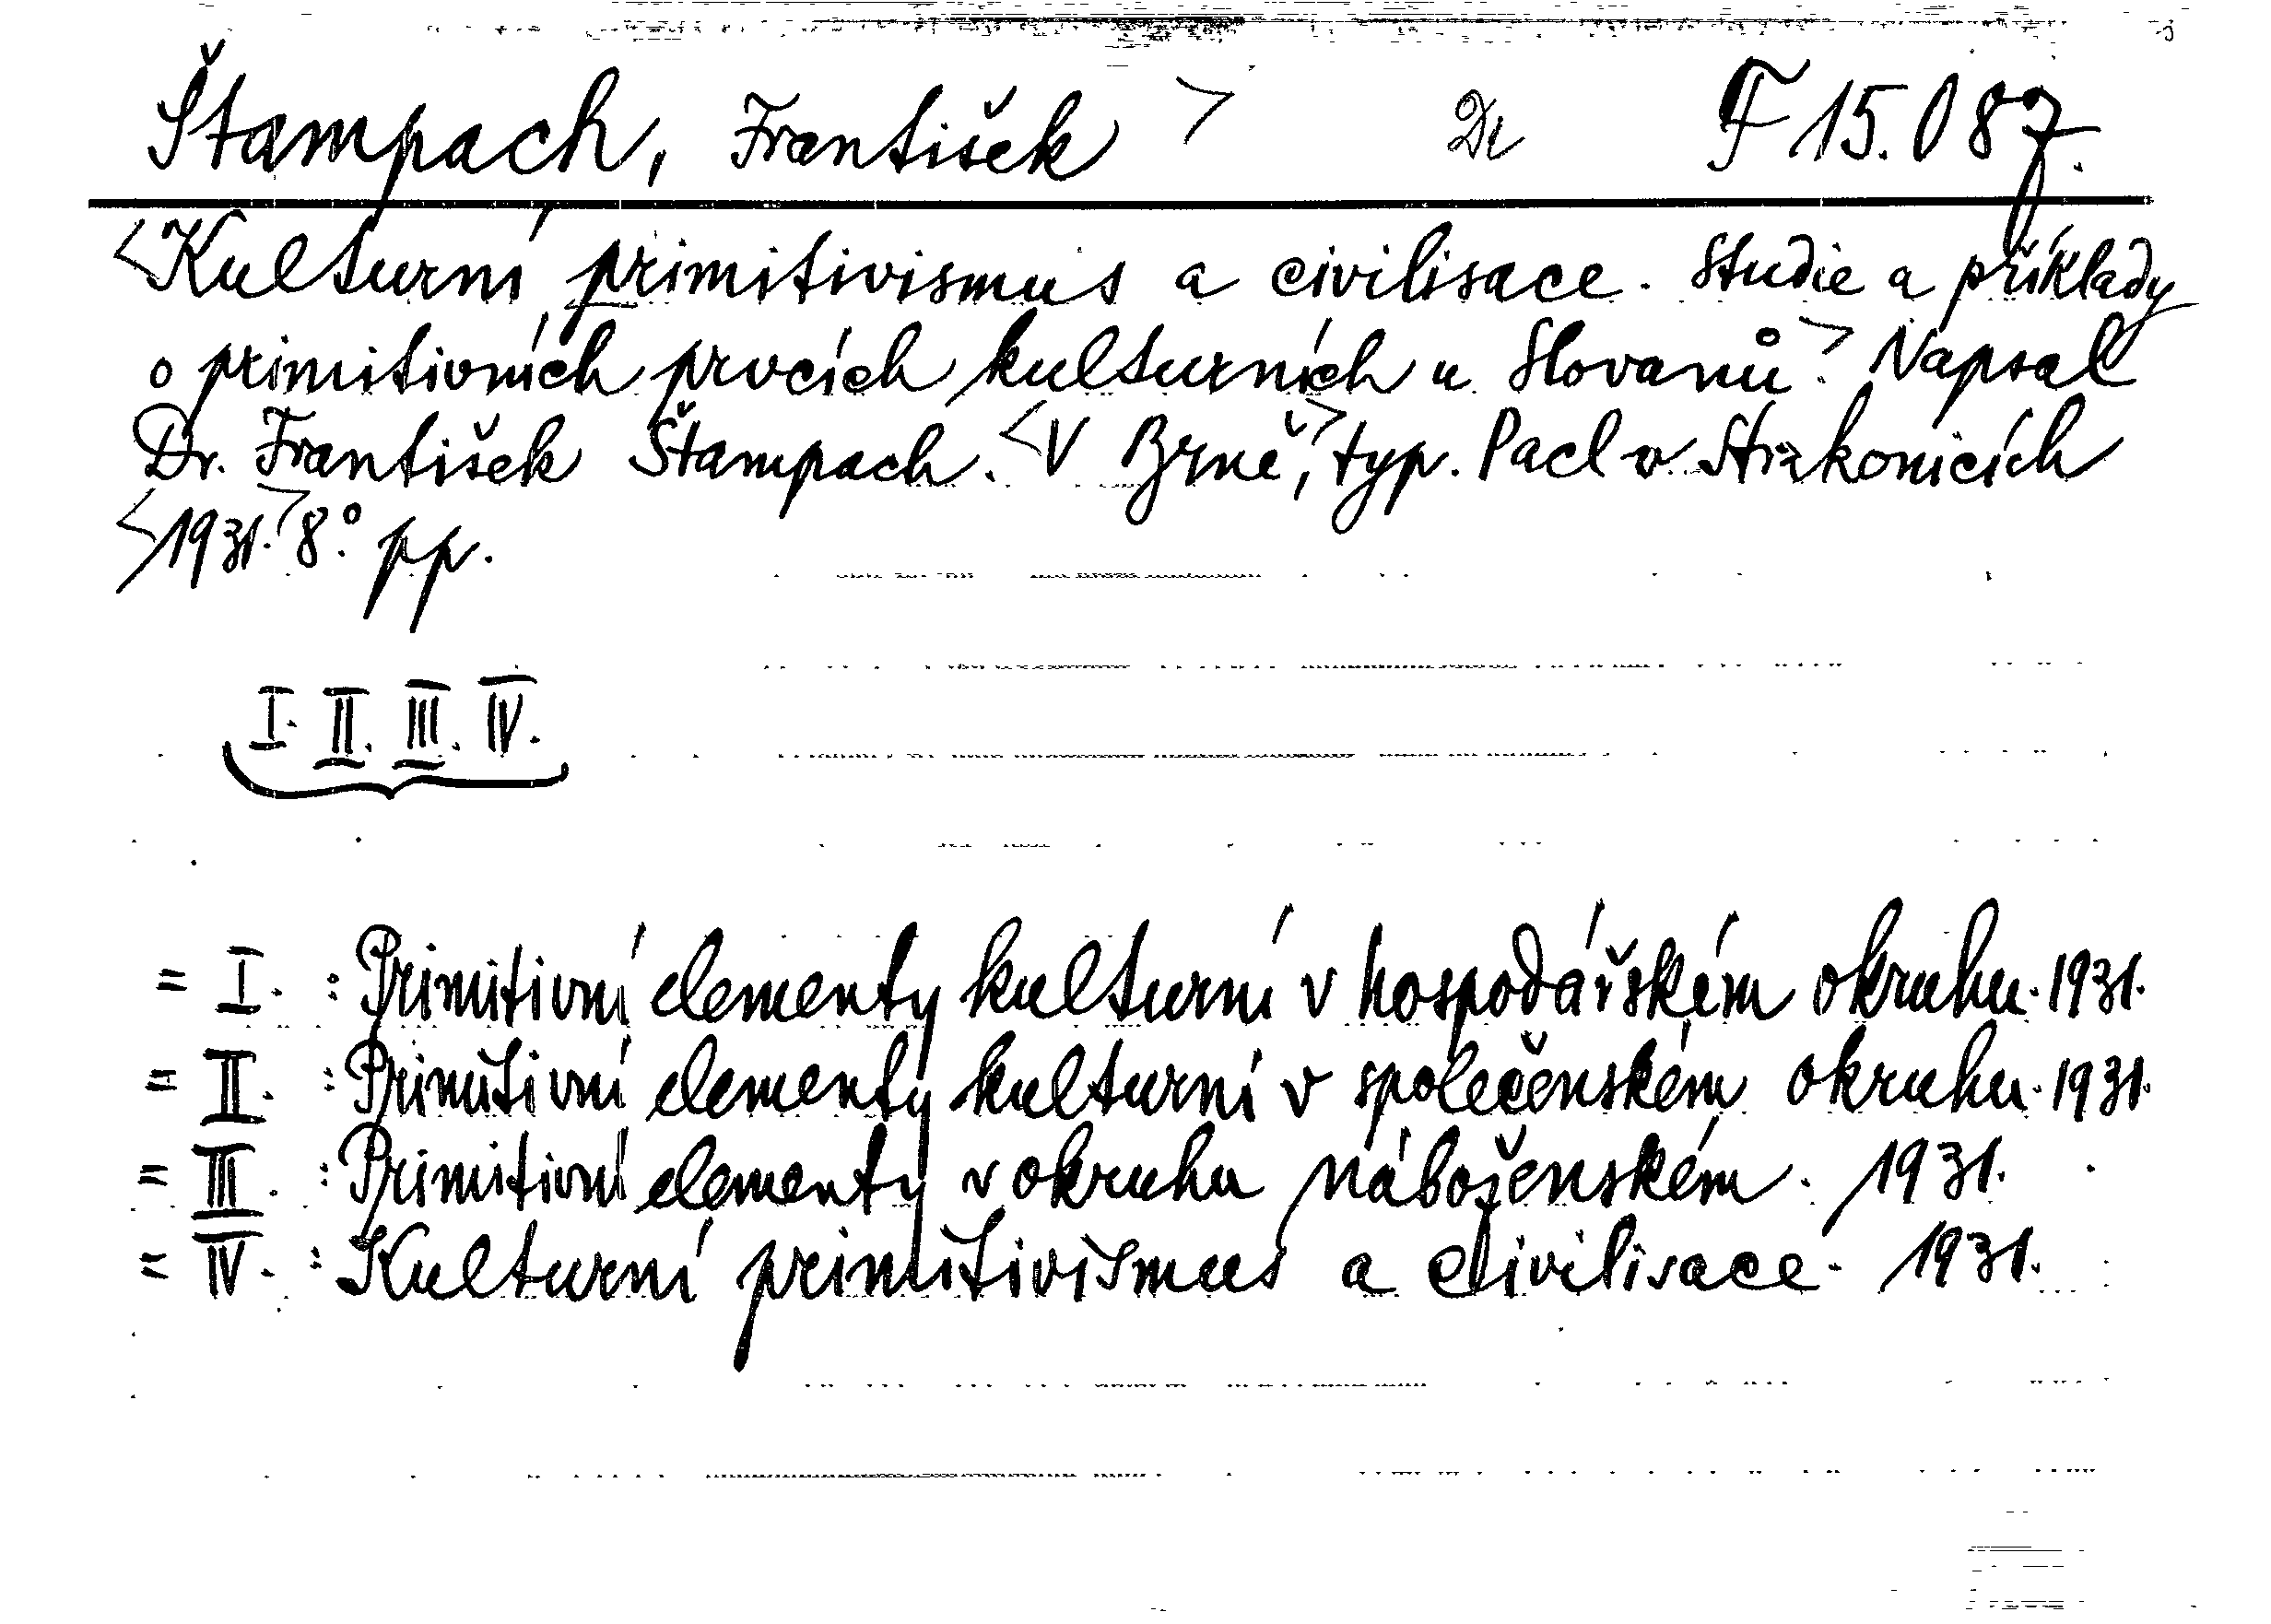 Štampach, František > Dr F 15.087.
<Kulturní primitivismus a civilisace. Studie a příklady
o primitivních prvcích kulturních u Slovanů.> Napsal
Dr. František Štampach. <V Brně,> typ. Pacl v Strakonicích
<1931.> 8.° pp.
I. II. III. IV.
= I. : Primitivní elementy kulturní v hospodářském okruhu. 1931.
= II. : Primitivní elementy kulturní v společenském okruhu. 1931.
= III. : Primitivní elementy v okruhu náboženském. 1931.
= IV. : Kulturní primitivismus a civilisace. 1931.